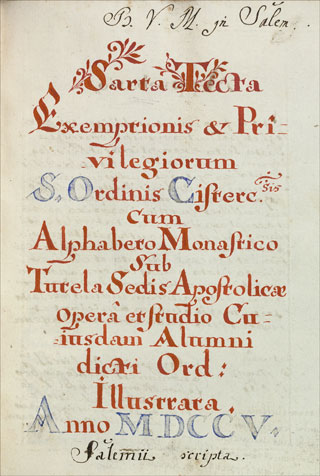 B. V. M. in Salem.
Sarta Tecta
Exemptionis & Pri-
vilegiorum
S. Ordinis Cisterc.sis
cum
Alphabeto Monastico
sub
Tutela Sedis Apostolicæ
operâ et studio Cu-
iusdam Alumni
dicti Ord:
Illustrata.
Anno MDCCV.
Salemii scripta.